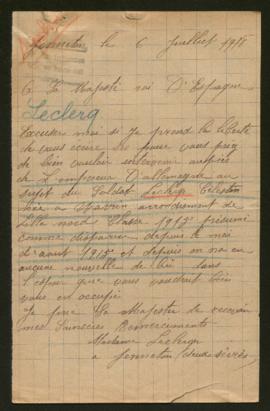 le 6 juillet 1917
A Sa Majesté roi D'Espagne
Leclerq
Excuser moi si Je prend la liberté
de vous ecrire Se pour vous prie
de bien vouloir intervenir auprès
de L'empereur D'allemagne au
sujet du Soldat Leclerq Célestin
née a arrondisement de
Lille nord Classe 1912 présumé
comme disparu depuis le moi
de aout 1915 et depuis on na eu
aucune nouvelle de lui dans
l'espoir que vous voudrez bien
vous en occupé
Je prie Sa Majester de recevoir
mes Sincères Remerciements
Madame Leclerq
a (deux sèvres)